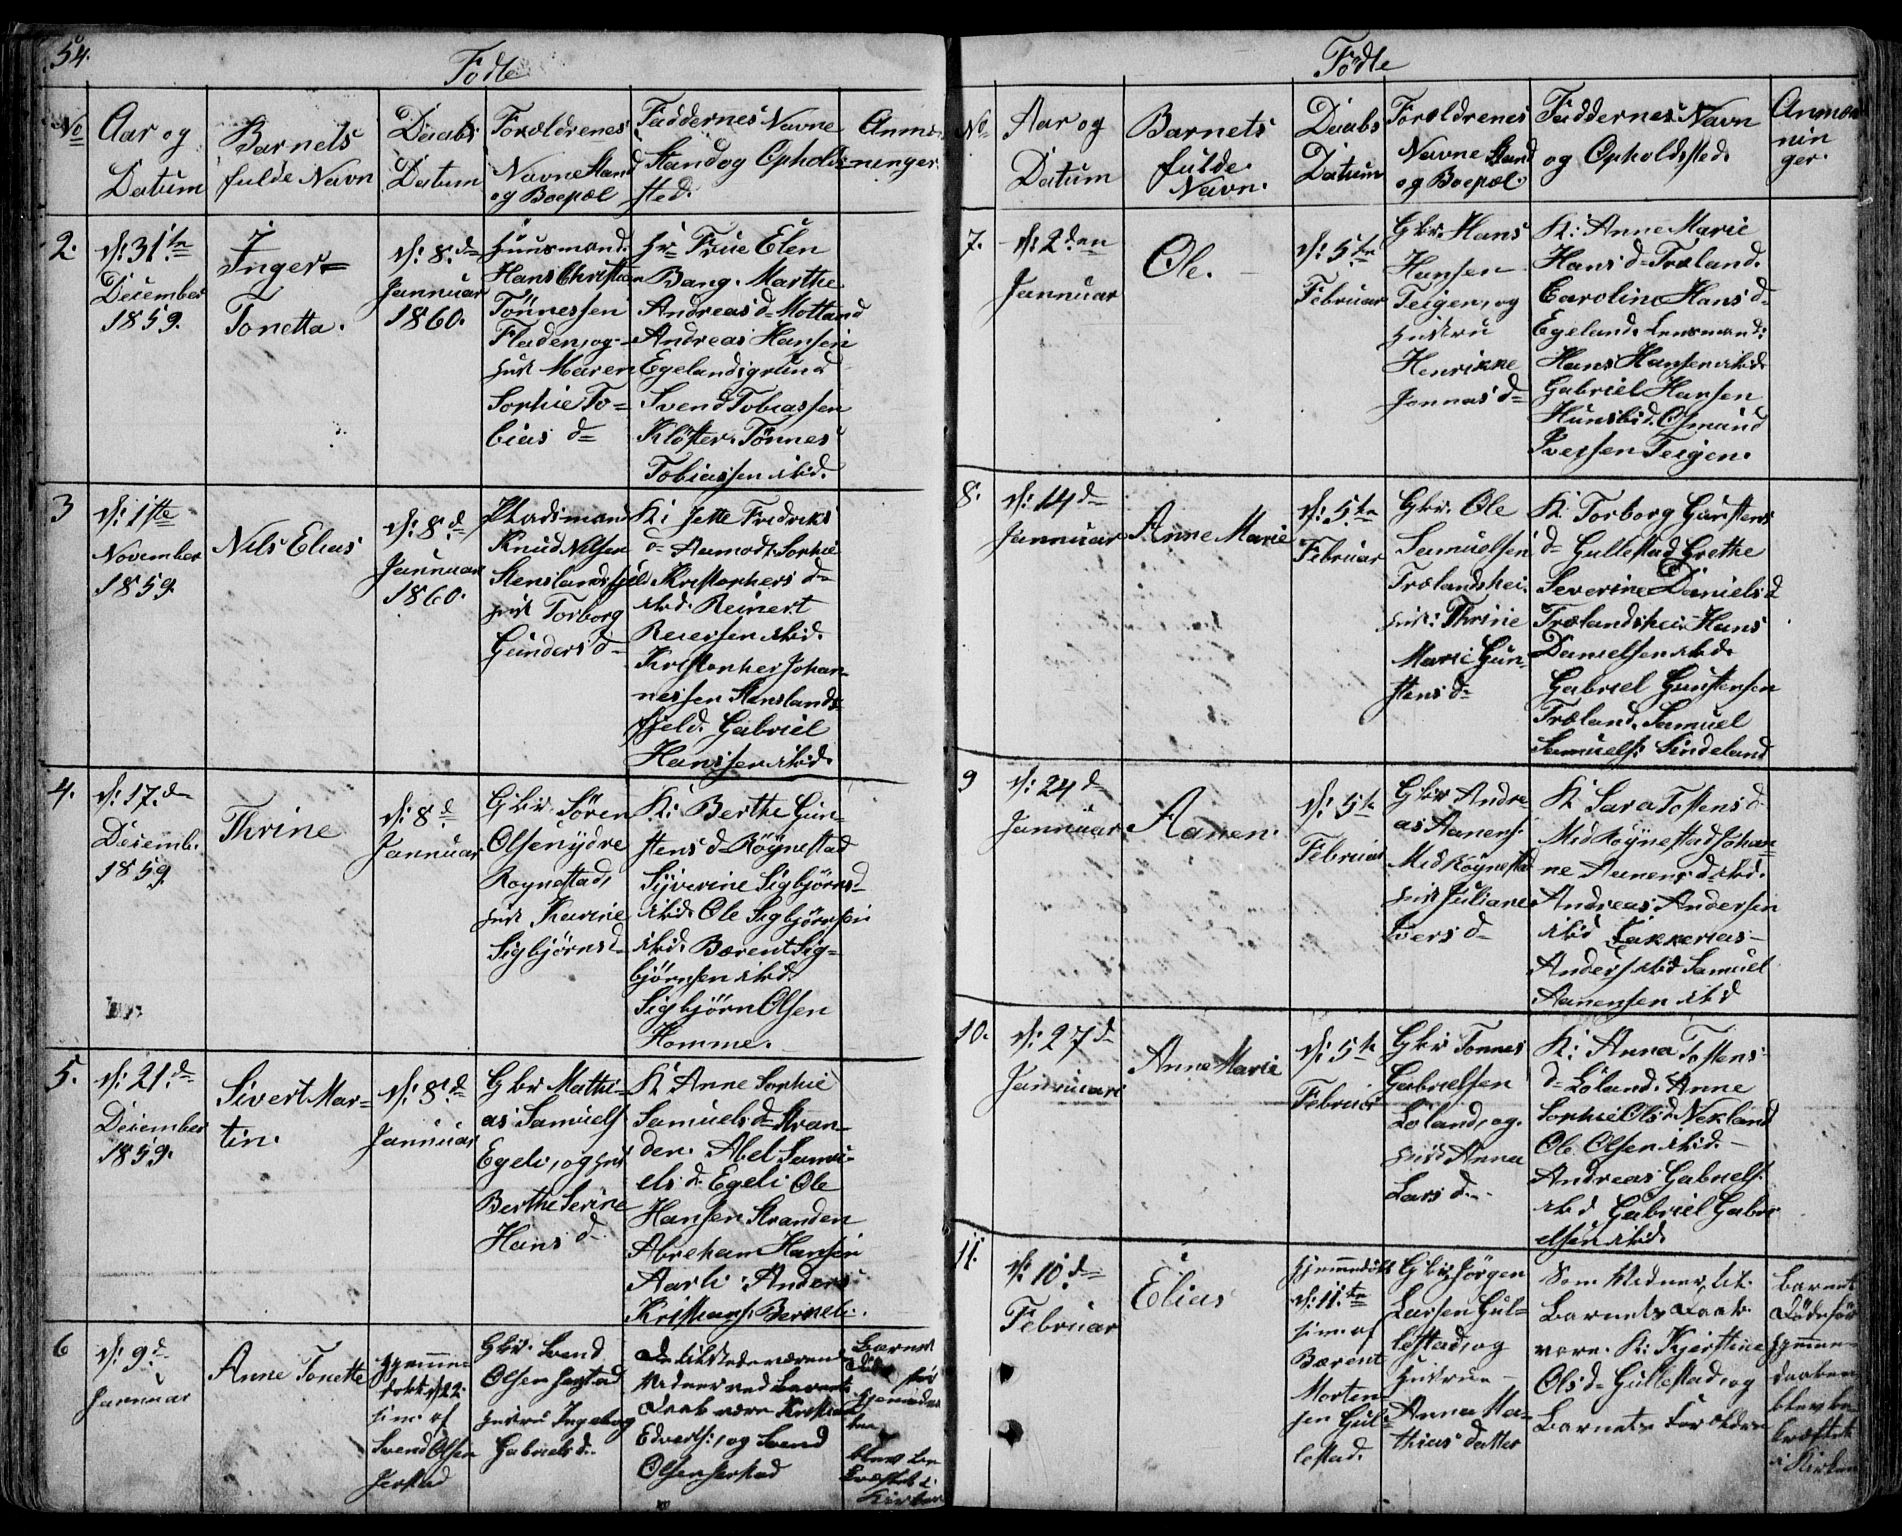 54.
Födte
No
Aar og
Datum
Barnets
fulde Navn
Daabs
Datum
Forældrenes
Navne Stand
og Boepæl
Faddernes Navne
Stand og Opholds=
sted.
Anmæ=
ninger.
2.
d: 31te
December
1859.
Inger=
Tonetta.
d: 8de
Januar
1860.
Huusmand
Hans Christian
Tönnessen
Fladen, og
Hust Maren
Sophie To=
bias d=
Hr Frue Elen
Bang. Marthe
Andreas d= Motland
Andreas Hansen
Egelandsgrund
Svend Tobiassen
Klöster. Tönnes
Tobiassen ibid.
3
d: 1ste
November
1859.
Nils Elias
d: 8d
Januar
1860.
Pladsmand
Knud Nilsen
Stenslandsfjeld
Hust Torborg
Gunders d=
K: Jette Fredriks
d= Aamodt. Sophie
Kristophers d=
ibid. Reinert
Reiersen ibid.
Kristopher Johan=
nessen Stenslands
fjeld. Gabriel
Hansen ibid.
4.
d: 17de
Decemb.
1859
Thrine
d: 8d
Januar
Gbr Sören
Olsen ydre
Röynestad,
Hust Karine
Sigbjörns d=
K: Berthe Gun=
stens d= Röynestad
Syverine Sigbjörns d=
ibid Ole Sigbjörnsen
ibid. Bærent Sig=
björnsen ibid
Sigbjörn Olsen
Homme.
5.
d: 21de
December
1859.
Sivert Mar=
tin.
d: 8d
Januar
Gbr Mathi=
as Samuels
Egeli, og Hust
Berthe Serine
Hans d
K: Anne Sophie
Samuels d= Stran=
den. Abel Samu=
els d= Egeli Ole
Hansen Stranden
Abreham Hansen
Aarli. Anders
Kristians: Berneli.
6
d: 9d
Januar
Anne Tonette
Hjemme=
döbt d 22
Svend Olsen
Jerstad
Gbr. Svend
Olsen Jerstad
Hustru Ingeborg
Gabriels d=
De tilstedeværende
Vidner ved Barnets
Daab vare Kristian
Edverts:, og Svend
Olsen Jerstad
Barnet
blev be
kræftet i
Kirken
Födte
No
Aar og
Datum
Barnets
fulde
Navn.
Daabs
Datum
Forældrenes
Navne Stand
og Boepæl.
Faddernes Navn
og Opholdsted.
Anmæ
nin
ger.
7.
d: 2den
Januar
Ole.
d: 5te
Februar
Gbr. Hans
Hansen
Teigen, og
Hustru
Henrikke
Jonnas d=
K: Anne Marie
Hans d= Træland.
Caroline Hans d=
Egeland. Lensmand:
Hans Hansen ibid
Gabriel Hansen
Hunsbed. Osmund
Iversen Teigen.
8.
d: 14d
Januar
Anne Marie
d: 5te
Februar
Gbr. Ole
Samuelsen
Trælandshei.
Hust: Thrine
Marie Gun=
stens d=
K: Torborg Gunstens
d= Gullestad Grethe
Severine Daniels d
Trælandshei. Hans
Danielsen ibid.
Gabriel Gunstensen
Træland. Samuel
Samuels: Lindeland
9
d: 24d
Januar
Aanen.
d: 5te
Februar
Gbr Andre=
as Aanens:
Midröynestad
Hust Juliane
Ivers d=
K: Sara Tostens d
Midröynestad Johan=
ne Aanens d= ibid.
Andreas Andersen
ibid Zakkerias
Anders: ibid Samuel
Aanensen ibid
10.
d: 27d
Januari
Anne Marie
d: 5te
Februar
Gbr Tönnes
Gabrielsen
Loland, og
Hust Anna
Lars d.
K: Anna Tostens
d= Loland. Anne
Sophie Ols d= Vekland
Ole Olsen ibid.
Andreas Gabriels:
ibid Gabriel Gabri
elsen ibid.
11.
d: 10de
Februar
Elias
Hjemmedöbt
d: 11te
Bærent
Morten=
sen Gul=
lestad.
Gbr Jörgen
Larsen Gul=
lestad, og
Hustrue
Anna Ma=
thias datter
Som Vidner til
Barnets Daab
vare. K: Kjerstine
Ols d= Gullestad, og
Barnets Forældre
Barnet
Döde för
Hjemme=
daaben
blev be
kræftet
i Kirken